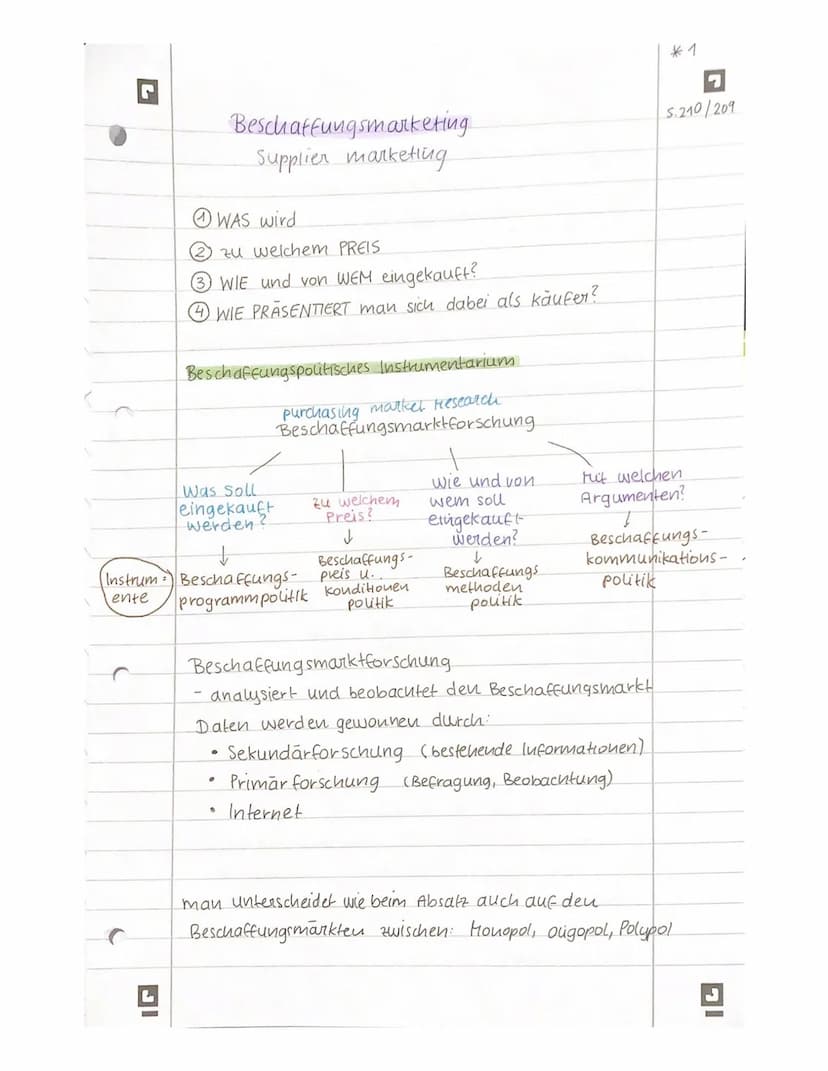 *1
S.210/209
Beschaffungsmarketing
Supplier marketing
① WAS wird
② zu welchem PREIS
③ WIE und von WEM eingekauft?
④ WIE PRÄSENTIERT man sich dabei als käufer?
Beschaffungspolitisches Instrumentarium
purchasing market research
Beschaffungsmarktforschung
Was soll
eingekauft
werden?
↓
Beschaffungs-
programmpolitik
zu welchem
Preis?
↓
Beschaffungs-
preis u.
konditionen
politik
wie und von
wem soll
eingekauft
werden?
↓
Beschaffungs
methoden
politik
Mit welchen
Argumenten?
↓
Beschaffungs-
kommunikations-
politik
Instrum-
ente
Beschaffungsmarktforschung
- analysiert und beobachtet den Beschaffungsmarkt
Daten werden gewonnen durch:
• Sekundärforschung (bestehende Informationen)
• Primärforschung (Befragung, Beobachtung)
• Internet
man unterscheidet wie beim Absatz auch auf den
Beschaffungsmärkten zwischen: Monopol, Oligopol, Polypol